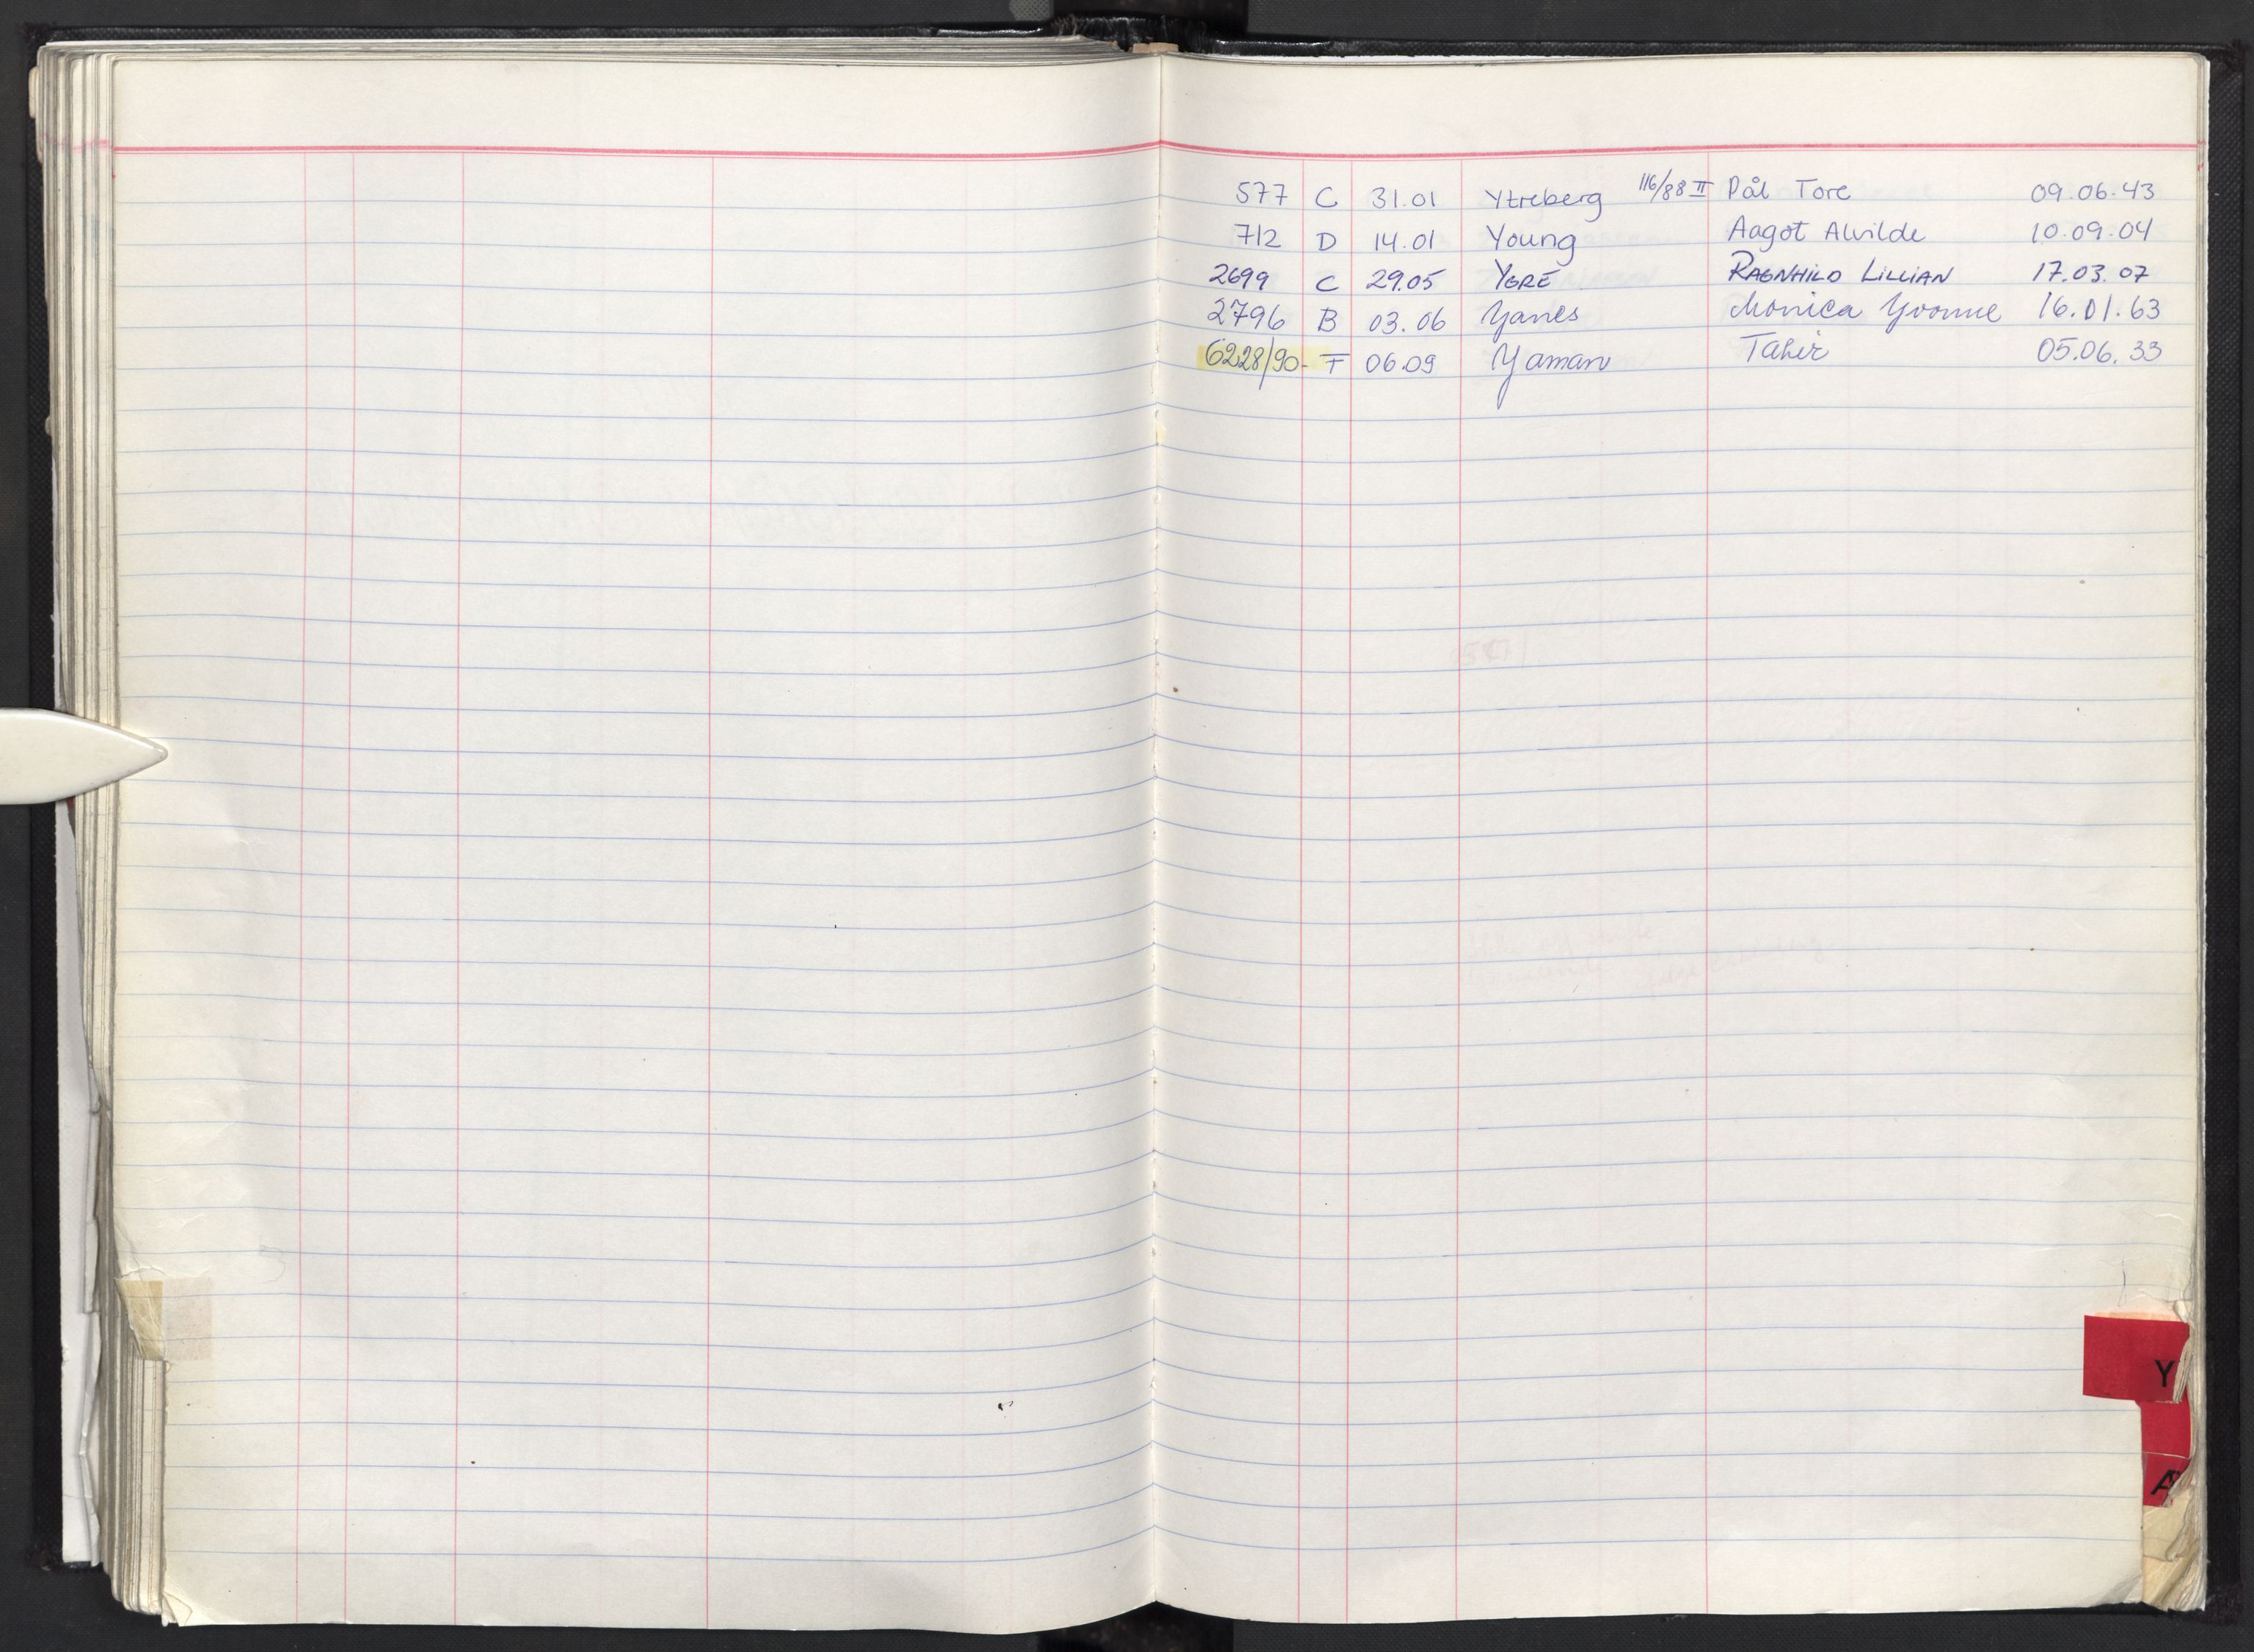 577 C 31.01 Ytreberg 116/88 II Pål Tore 09.06.43
712 D 14.01 Young Aagot Alvilde 10.09.04
2699 C 29.05 YGRE RAGNHILD LILLIAN 17.03.07
2796 B 03.06 Yanes Monica Yvonne 16.01.63
6228/90- F 06.09 Yaman Tahir 05.06.33
Y
Æ